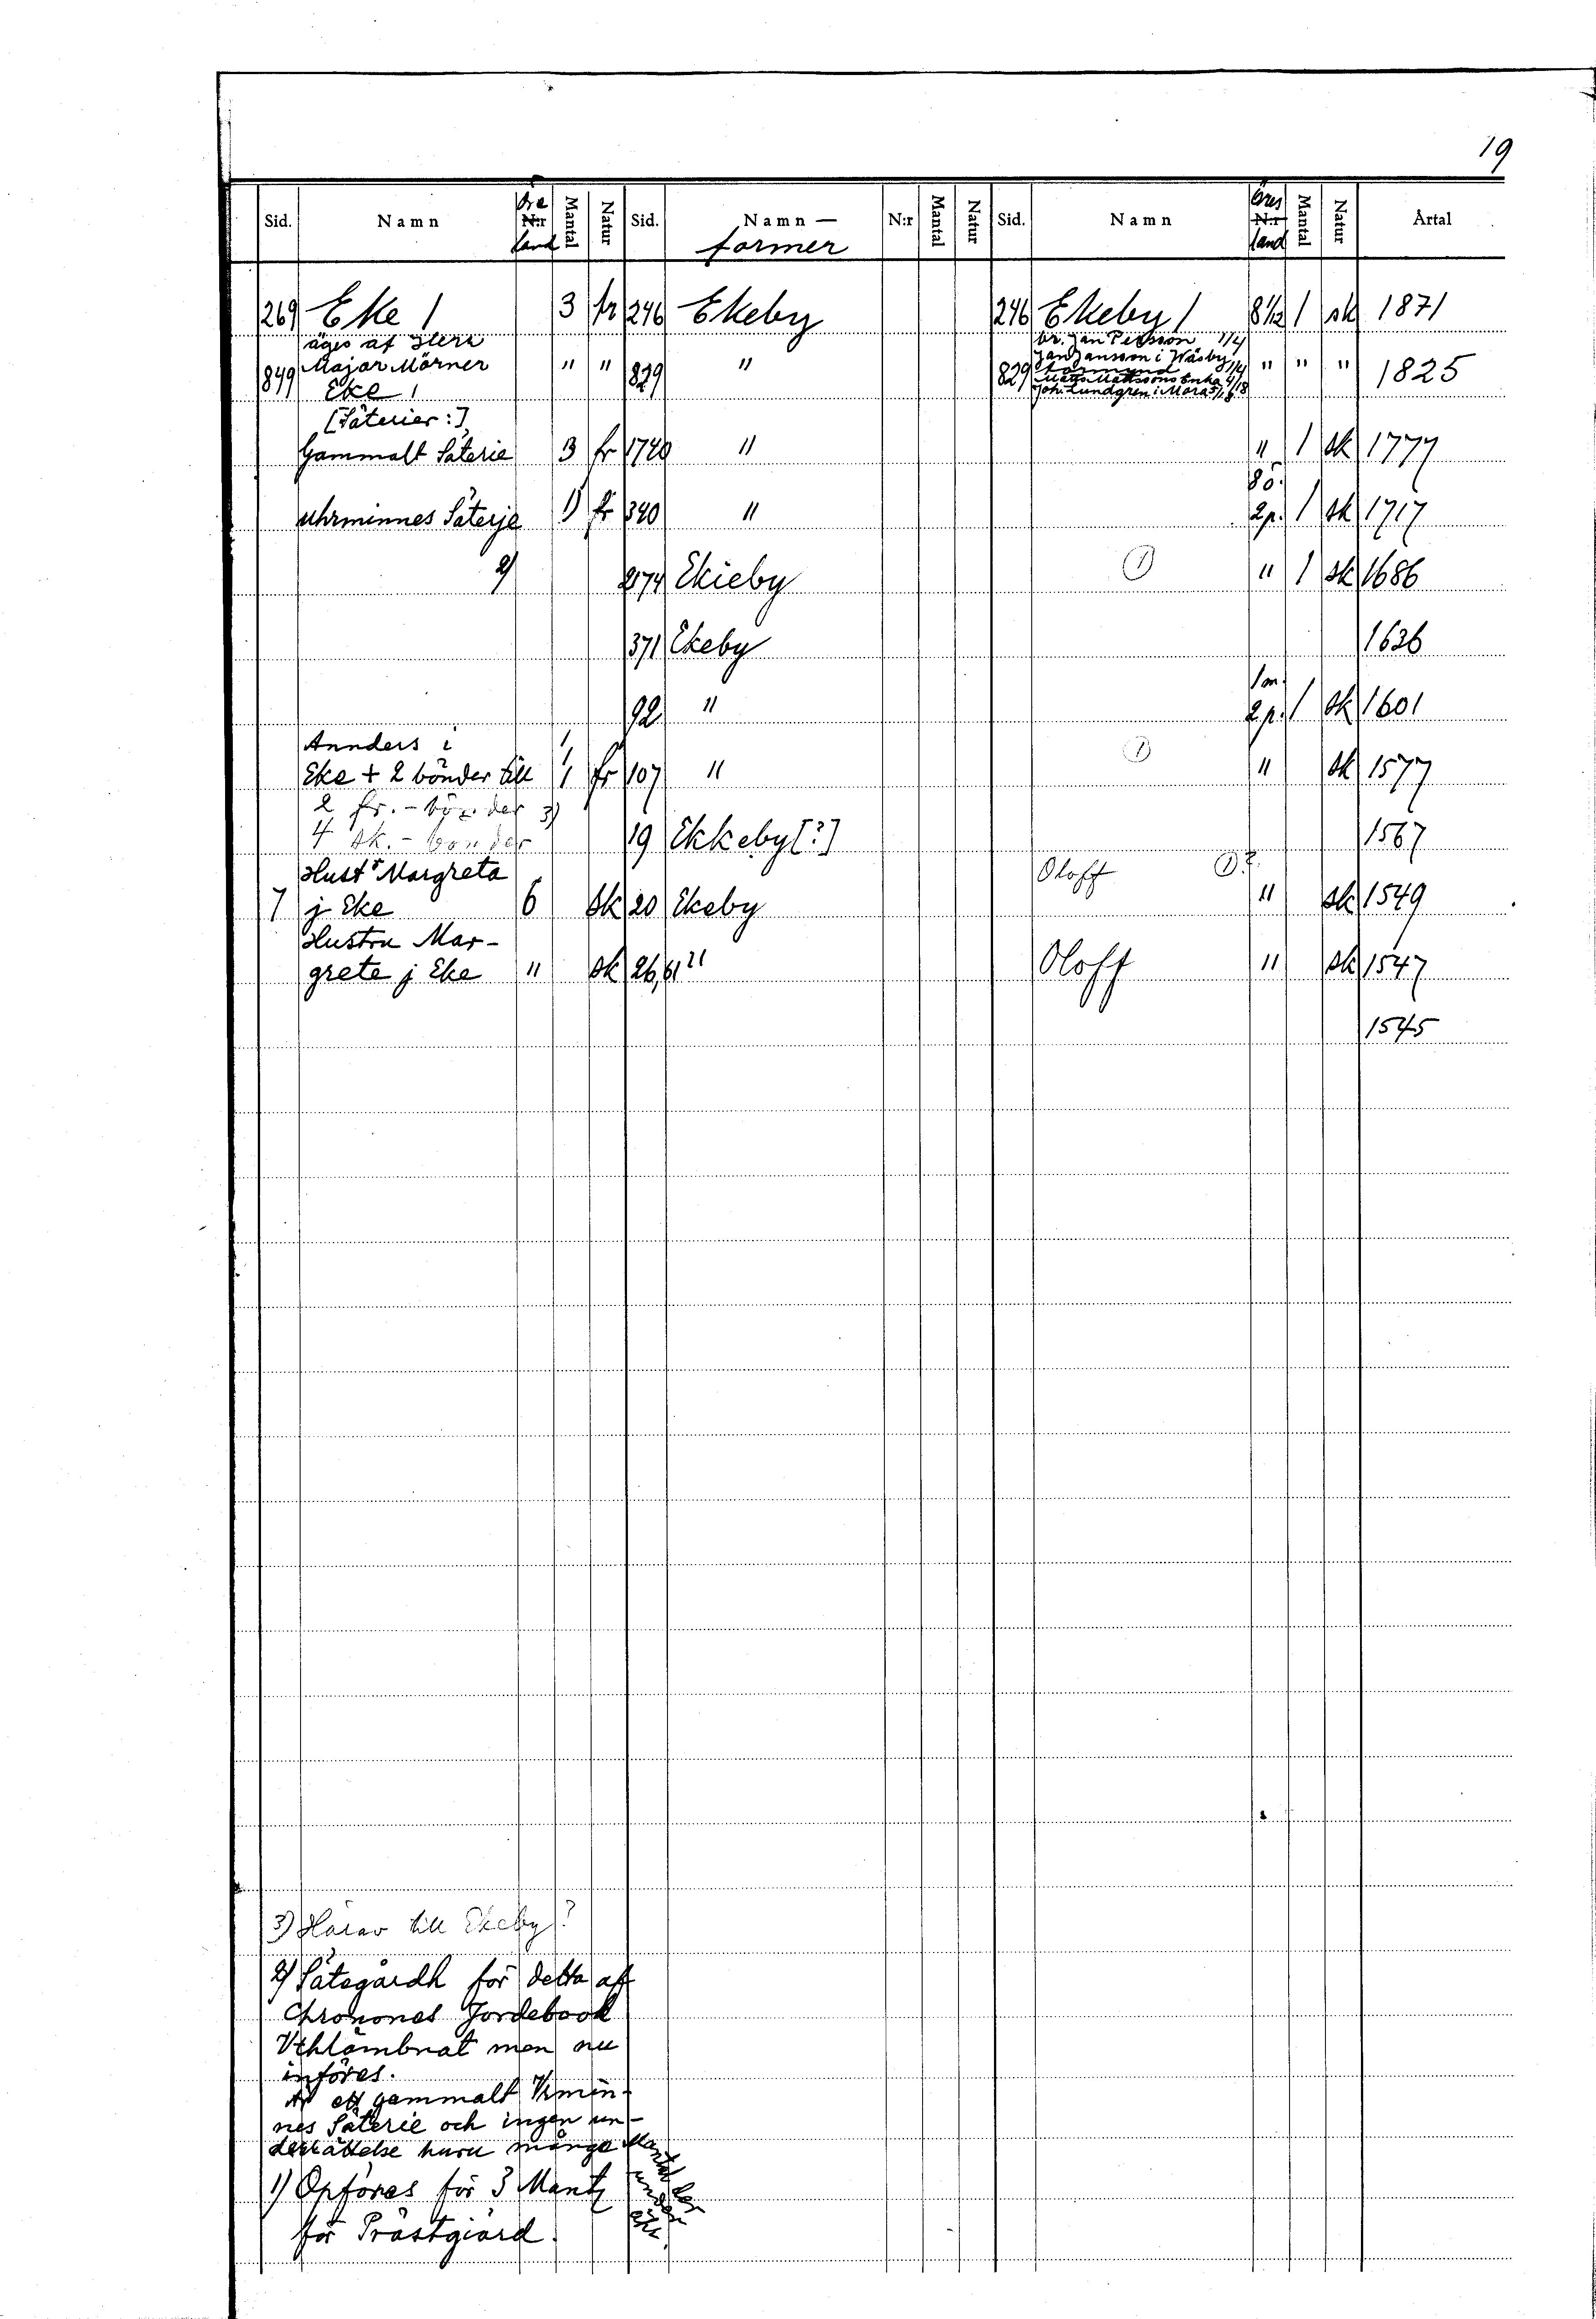 19
Sid. Namn Öre N:r land Mantal Natur Sid. Namn — former N:r Mantal Natur Sid. Namn Öres N:r land Mantal Natur Årtal
269 Eke 1 3 fr 246 Ekeby 246 Ekeby 1 8 1/12 1 sk 1871
äges af Herr br. Jan Persson 1/4
849 Major Mörner " " 829 " 829 Jan Jansson i Wäsby 1/4 " " " 1825
Eke 1 Matts Mattssons Enka 4/18
Joh. Lundgren i Mora 5/18
[Säterier:]
Gammalt Säterie 3 fr 1720 " " 1 sk 1777
8ö.
uhrminnes Säterje 1) fr 340 " 2p. 1 sk 1717
2) 2174 Ekieby 1) " 1 sk 1686
371 Ekeby 1636
1m.
92 " 2p. 1 sk 1601
Annders i 1,
Eke + 2 bönder till 1 fr 107 " 1) " sk 1577
2 fr. - bönder 3)
4 sk. - bönder 19 Ekkeby [?] 1567
Hustr Margreta Oloff 1)?
7 j Eke 6 sk 20 Ekeby " sk 1549
Hustru Mar-
grete j Eke " sk 26,61 " Oloff " sk 1547
1545
3) Härav till Ekeby?
2) Sätegårdh för detta aff
Chronones Jordebook
Vthlämbnat men nu
införes.
Är ett gammalt Vrmin-
nes Säterie och ingen un-
derrättelse huru månge Mantal
1) Opföres för 3 Mantz
för Prästgiärd.